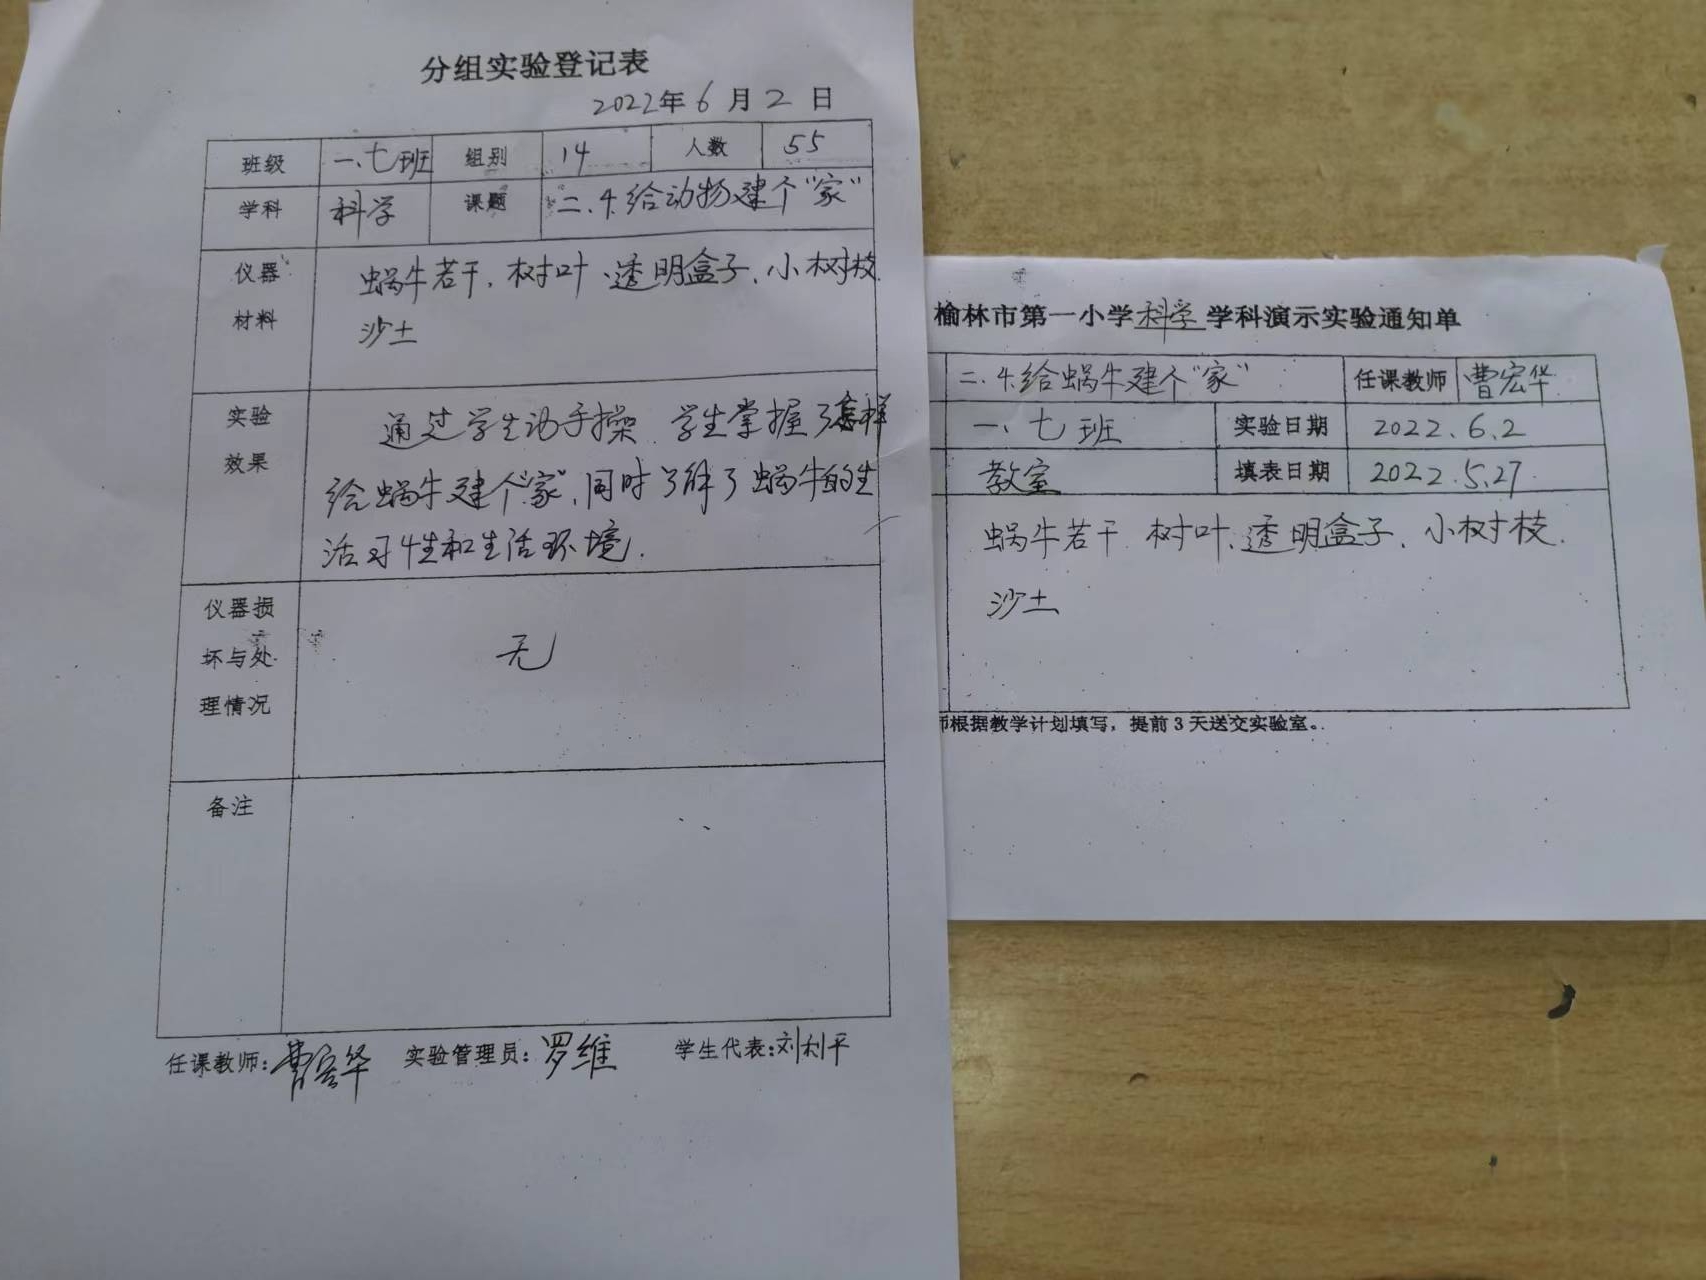 分组实验登记表
2022年 6 月 2 日
班级 一.七班 组别 14 人数 55
学科 科学 课题 二.4.给动物建个“家”
仪器材料 蜗牛若干.树叶.透明盒子.小树枝.
沙土
实验效果 通过学生动手操.学生掌握了怎样
给蜗牛建个“家”.同时了解了蜗牛的生
活习性和生活环境.
仪器损坏与处理情况 无
备注
任课教师:曹宏华 实验管理员:罗维 学生代表:刘利平
榆林市第一小学科学学科演示实验通知单
二.4.给蜗牛建个“家” 任课教师 曹宏华
一.七班 实验日期 2022.6.2
教室 填表日期 2022.5.27.
蜗牛若干.树叶.透明盒子.小树枝.
沙土
师根据教学计划填写，提前 3 天送交实验室。